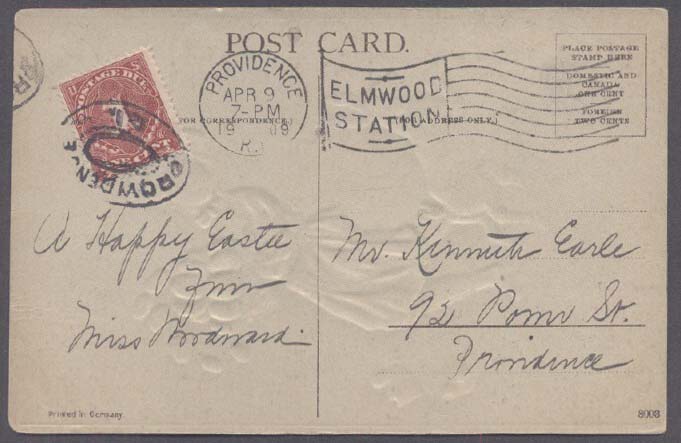 POST CARD.
PROVIDENCE
APR 9
7-PM
19 09
R.I.
ELMWOOD
STATION
PLACE POSTAGE
STAMP HERE
DOMESTIC AND
CANADA
ONE CENT
FOREIGN
TWO CENTS
POSTAGE DUE
PROVIDENCE
R.I.
FOR CORRESPONDENCE.)
(FOR ADDRESS ONLY.)
A Happy Easter
From
Miss Woodward.
Mr. Kenneth Earle
92 Pomo St.
Providence
Printed in Germany.
8003